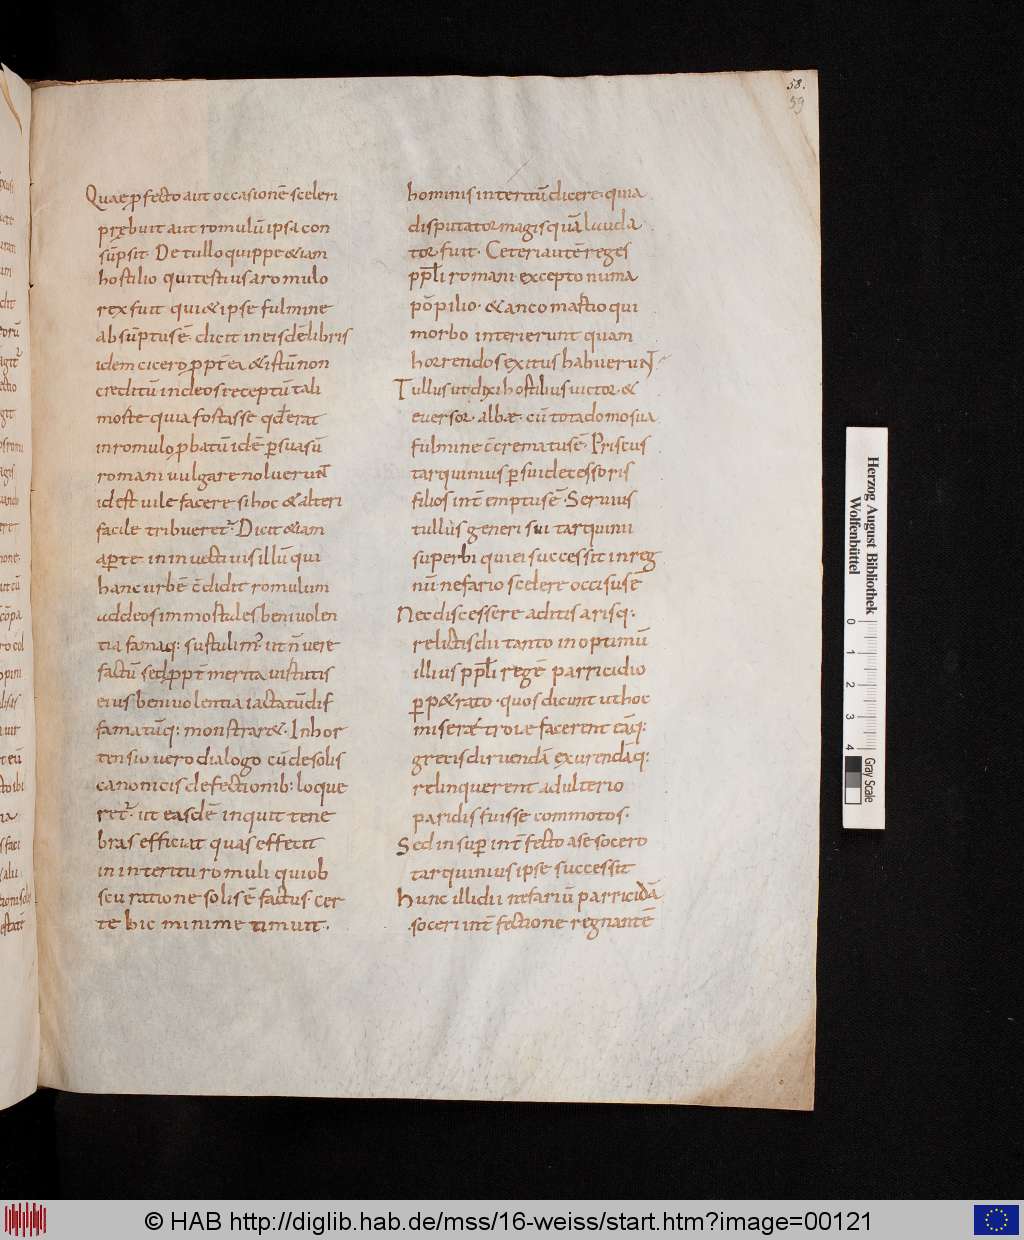 58.
59
Quae ꝓfecto aut occasionē sceleri
prębuit aut romulū ipsa con
sūpsit. De tullo quippe & iam
hostilio qui tertius a romulo
rex fuit qui & ipse fulmine
absūptus ē. dicit in eisdē libris
idem cicero ꝓpt ea & istū non
creditū in deos receptū tali
morte quia fortasse qđ erat
in romulo ꝓbatū id ē ꝑsuasū
romani uulgare noluerun̄
id est uile facere si hoc & alteri
facile tribueret̃. Dicit & iam
aꝑte in inuectiuis illū qui
hanc urbē c̄didit romulum
ad deos immortales beniuolen
tia famaq: sustulim᾽. ut n̄ uere
factū sed ꝓpt̄ merita uirtutis
eius beniuolentia iactatū dif
famatūq: monstrar&. In hor
tensio uero dialogo cū de solis
canonicis defectionib: loque
ret̃. ut easdē inquit tene
bras efficiat quas effecit
in interitu romuli qui ob
scuratione solis ē factus. cer
te hic minime timuit.
hominis interitū dicere. quia
disputator magis quā lauda
tor fuit. Ceteri autē reges
ppl̄i romani excepto numa
pōpilio. & anco martio qui
morbo interierunt quam
horrendos exitus habuerun̄
Tullus ut dixi hostibus uictor. &
euersor albae. cū tota domo sua
fulmine c̄crematus ē. Priscus
tarquinius ꝑ sui decessoris
filios int̄emptus ē. Seruius
tullius generi sui tarquinii
superbi qui ei successit in reg
nū nefario scelere occisus ē
Nec discessere aditis arisq:
relictis dii tanto in optimū
illius ppl̄i regē parricidio
ꝑp&rato. quos dicunt ut hoc
miserae troiae facerent eāq:
grecis diruendā exurendāq:
relinquerent adulterio
paridis fuisse commotos.
Sed insuꝑ int̄fecto a se socero
tarquinius ipse successit
Hunc illi dii nefariū parricidā
soceri int̄fectione regnantē
Herzog August Bibliothek
Wolfenbüttel
0 1 2 3 4
Gray Scale
© HAB http://diglib.hab.de/mss/16-weiss/start.htm?image=00121